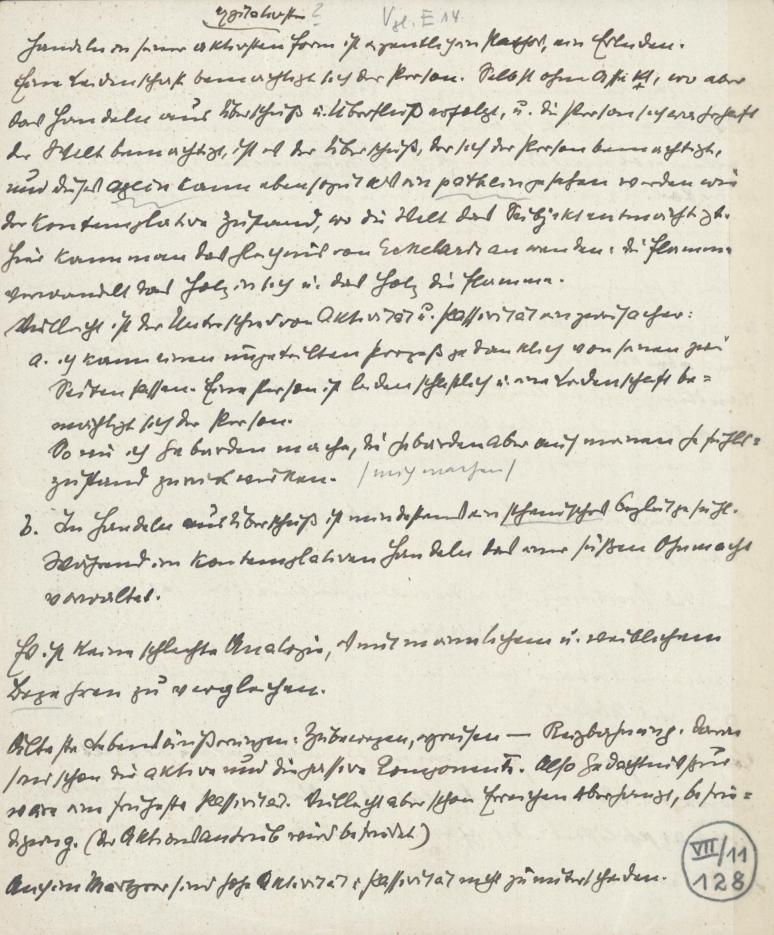 Vgl. E 14
Handeln in seiner aktivsten Form ist eigentlich ein Pathos, ein Erleiden.
Eine Leidenschaft bemächtigt sich der Person. Selbst ohne Affekt, wo aber
das Handeln aus Überschuß u. Überfluß erfolgt, u. die Person sich
der Welt bemächtigt, ist es der Überschuß, der sich der Person bemächtigt,
und dieses agein kann ebensogut als ein pathein gesehen werden wie
der kontemplative Zustand, wo die Welt das Subjekt entmächtigt.
Hier kann man das Gleichnis von Eckehard anwenden: die Flamme
verwandelt das Holz in sich u. das Holz die Flamme.
Vielleicht ist der Unterschied von Aktivität u. Passivität ein zweifacher:
a. ich kann einen ungeteilten Prozeß gedanklich von seinen zwei
Seiten fassen. Eine Person ist leidenschaftlich u. eine Leidenschaft be=
mächtigt sich der Person.
So wie ich Gebärden mache, die Gebärden aber auf meinen Gefühls=
zustand zurückwirken. /mich machen/
b. Im Handeln aus Überschuß ist mindestens ein sthenisches Begleitgefühl.
Während im kontemplativen Handeln das einer süßen Ohnmacht
vorwaltet.
Es ist keine schlechte Analogie, es mit männlichem u. weiblichem
Begehren zu vergleichen.
Älteste Lebensäußerungen: Zubewegen, ergreifen — Reizbahnung. Darin
sind schon die aktive und die passive Componente. Also Gedächtnisspur
wäre eine früheste Passivität. Vielleicht aber schon Erreichen überhaupt, befrie=
digung. (Der Aktionsantrieb wird befriedet)
Auch im Martyrer sind hohe Aktivität u. Passivität nicht zu unterscheiden.
VII/11
128